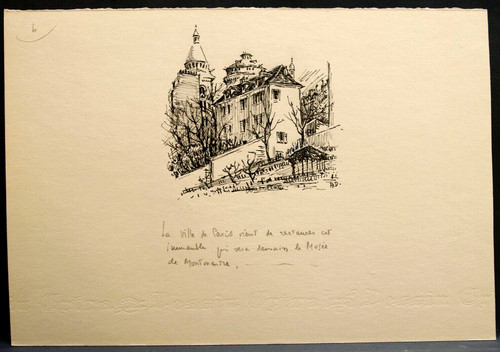 6
AD.
La Ville de Paris vient de restaurer cet
immeuble qui sera demain le Musée
de Montmartre.